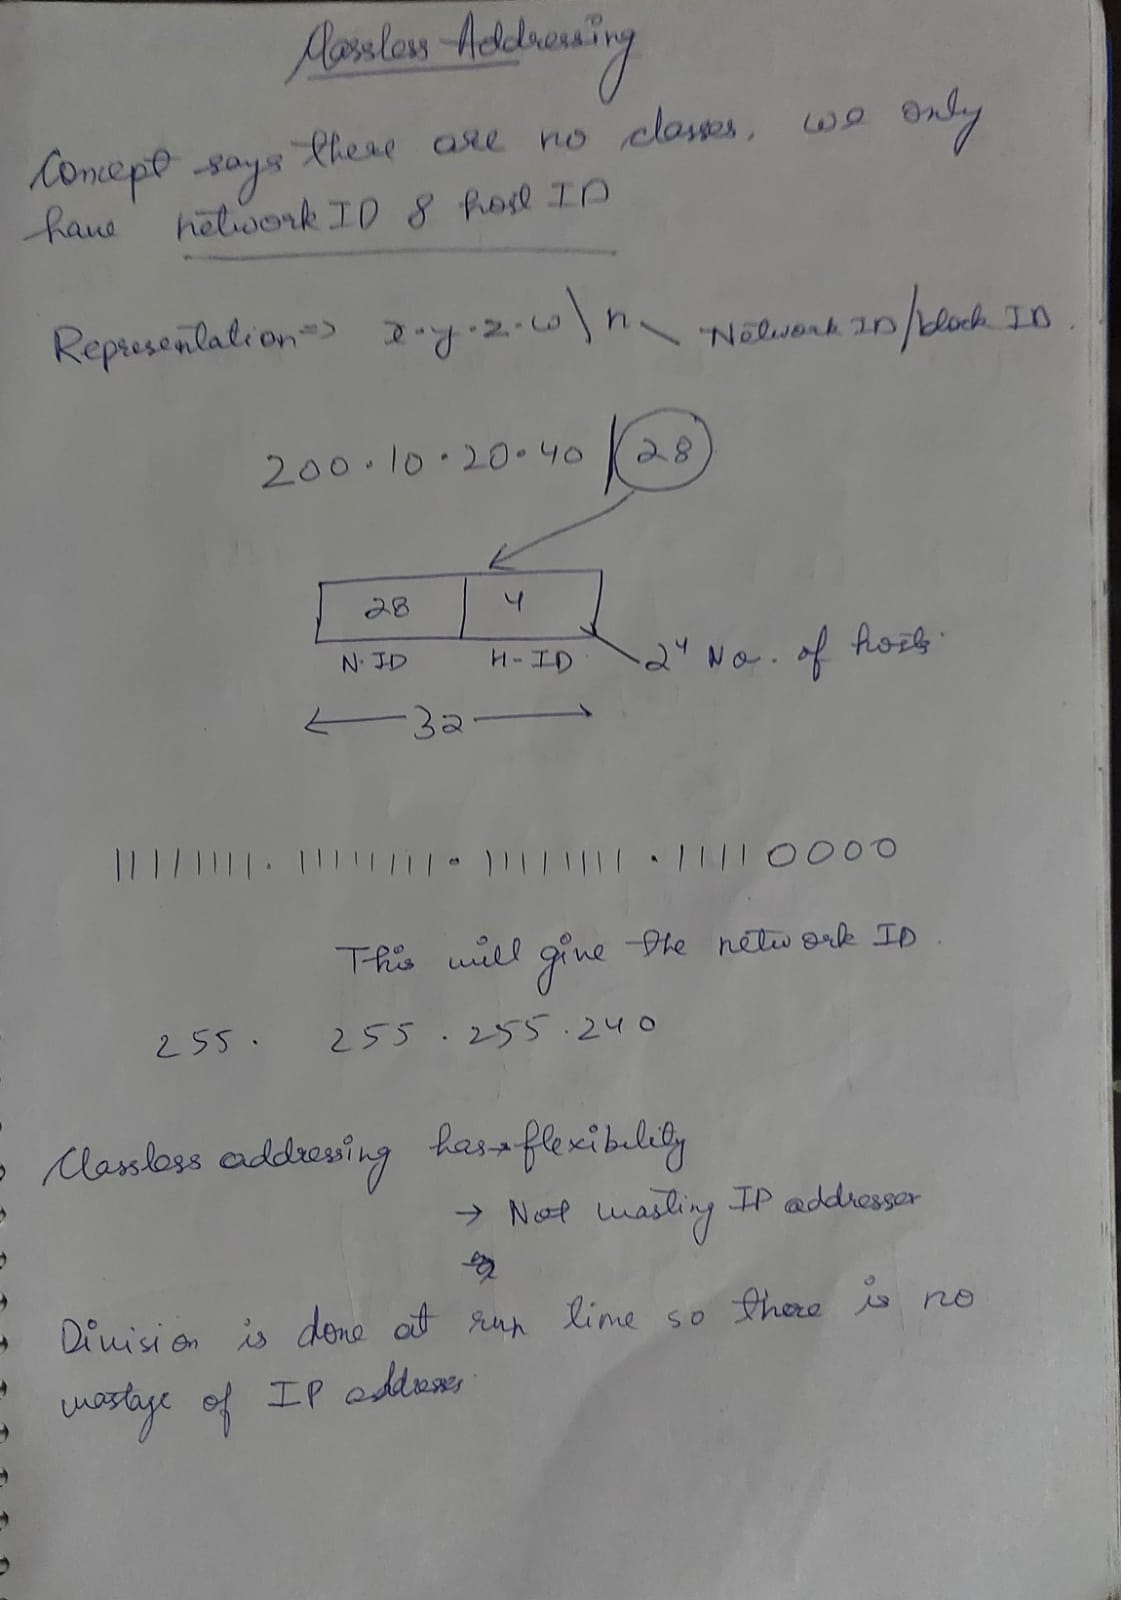 Classless Addressing
Concept says there are no classes, we only
have network ID & host ID
Representation => x.y.z.w \ n Network ID/block ID.
200.10.20.40 / 28
28 4
N.ID H-ID 2⁴ No. of hosts.
32
11111111.11111111.11111111.11110000
This will give the network ID.
255. 255.255.240
Classless addressing has → flexibility
→ Not wasting IP addresses
Division is done at run time so there is no
wastage of IP addresses.